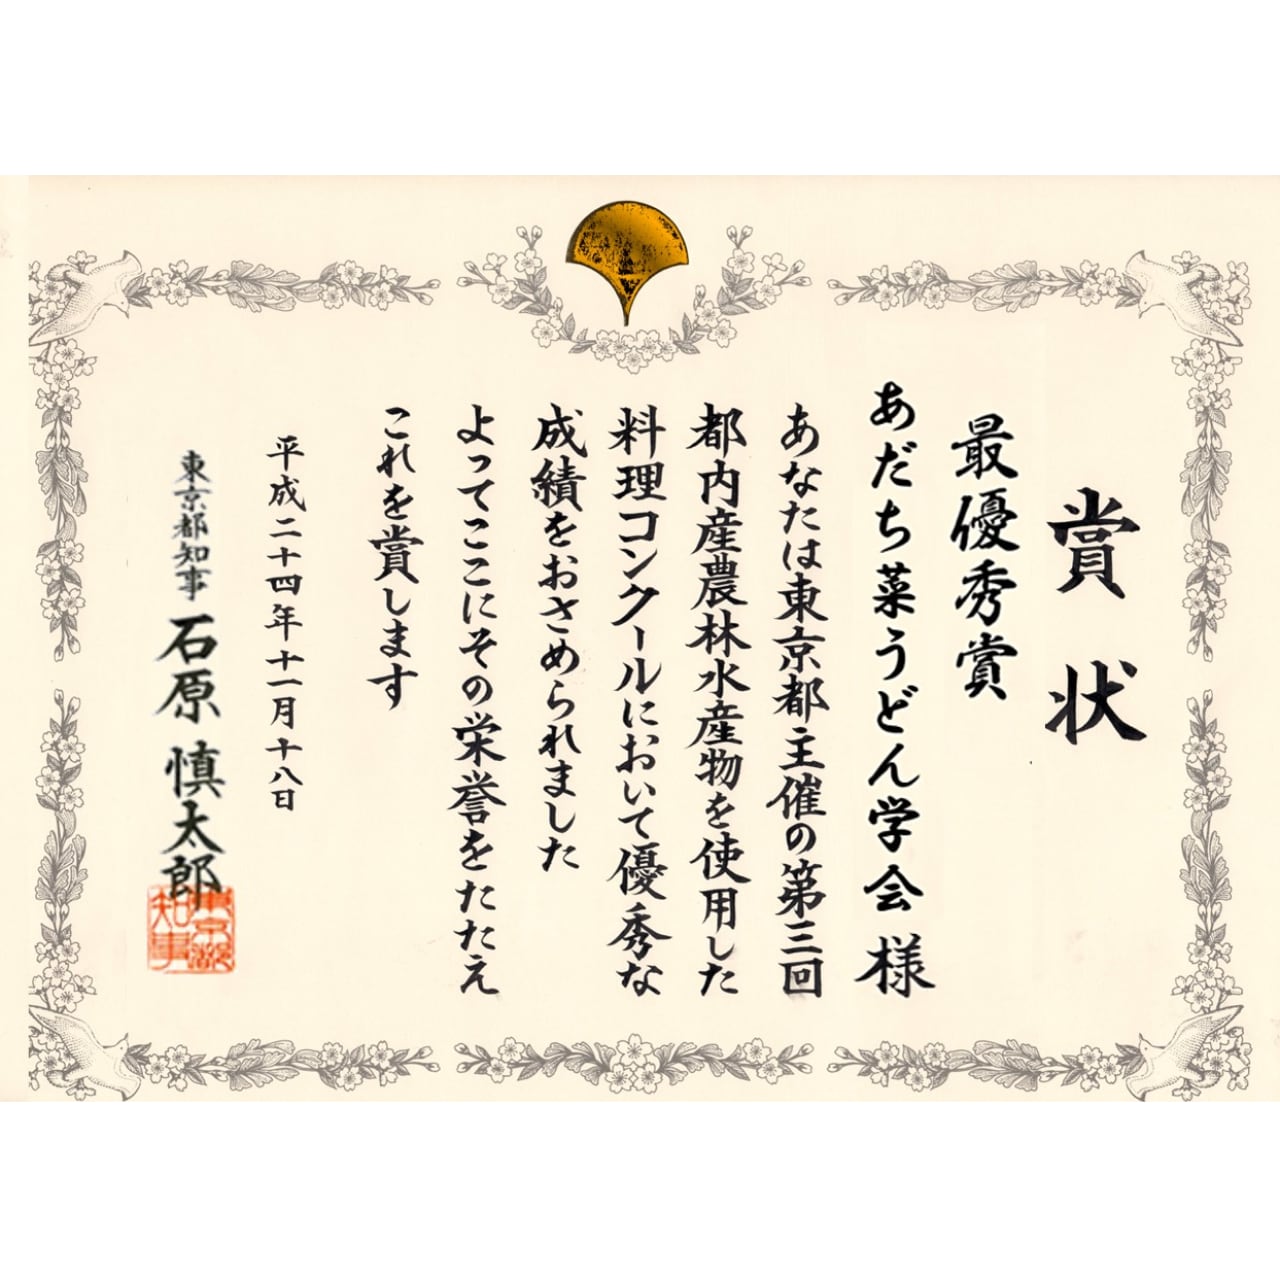 賞状
最優秀賞
あだち菜うどん学会様
あなたは東京都主催の第三回
都内産農林水産物を使用した
料理コンクールにおいて優秀な
成績をおさめられました
よってここにその栄誉をたたえ
これを賞します
平成二十四年十一月十八日
東京都知事 石原慎太郎
東京都知事